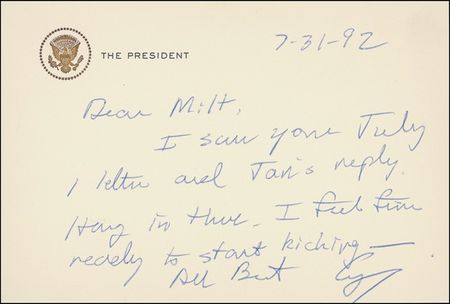 THE PRESIDENT
7-31-92
Dear Milt,
I saw your July
1 letter and Jan's reply.
Hang in there. I feel fine
ready to start kicking—
All Best